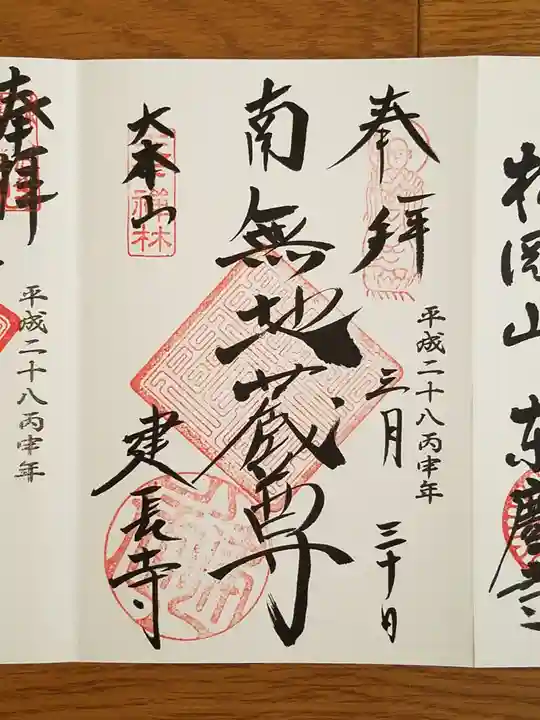 松岡山 東慶寺
奉拝
平成二十八丙申年
三月 三十日
南無地蔵尊
大本山
禅林
建長寺
奉拝
平成二十八丙申年